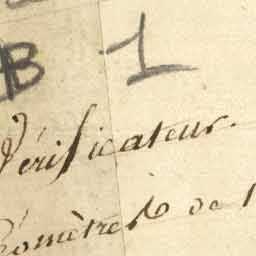 B 1
Vérificateur.
Géomètre de l